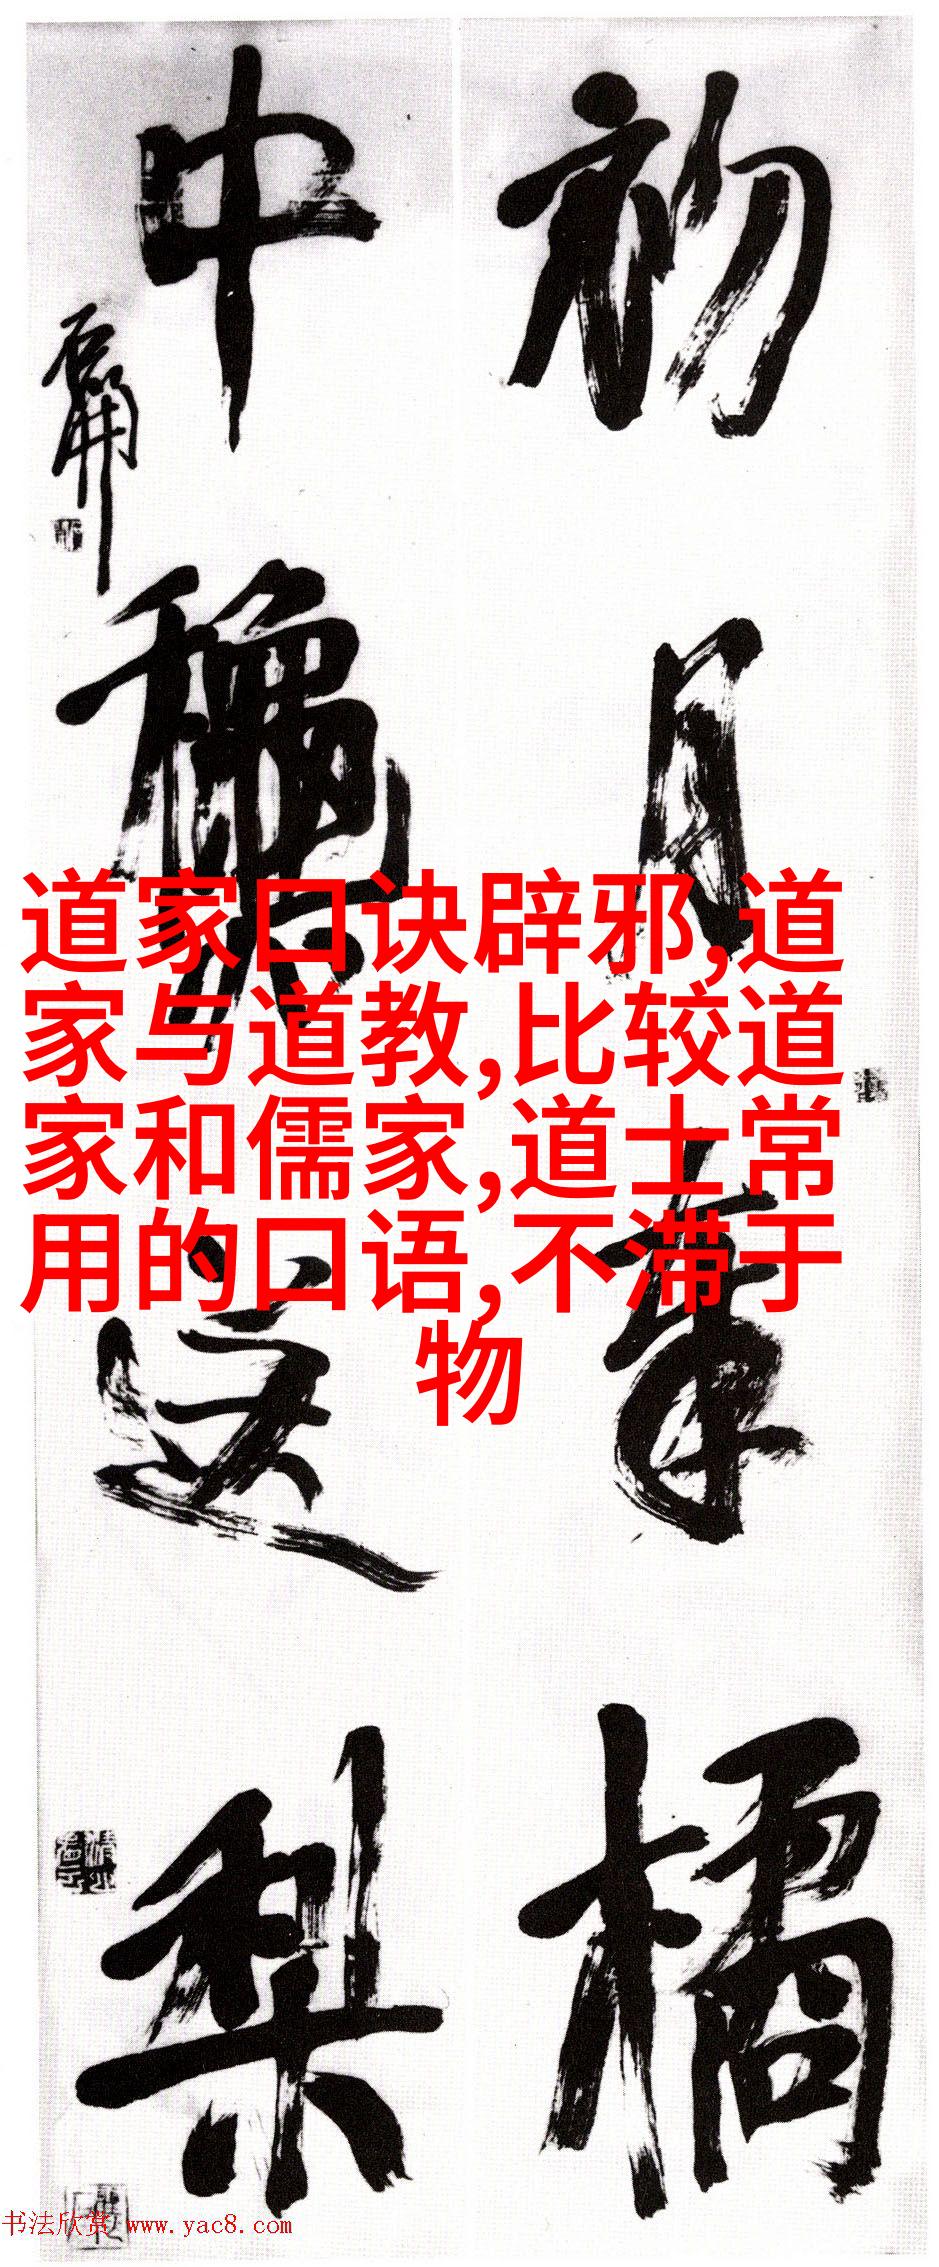 初月橘
中梨
道家口诀辟邪,道
家与道教,比较道
家和儒家,道士常
用的口语,不滞于
物
书法欣赏 www.yac8.com